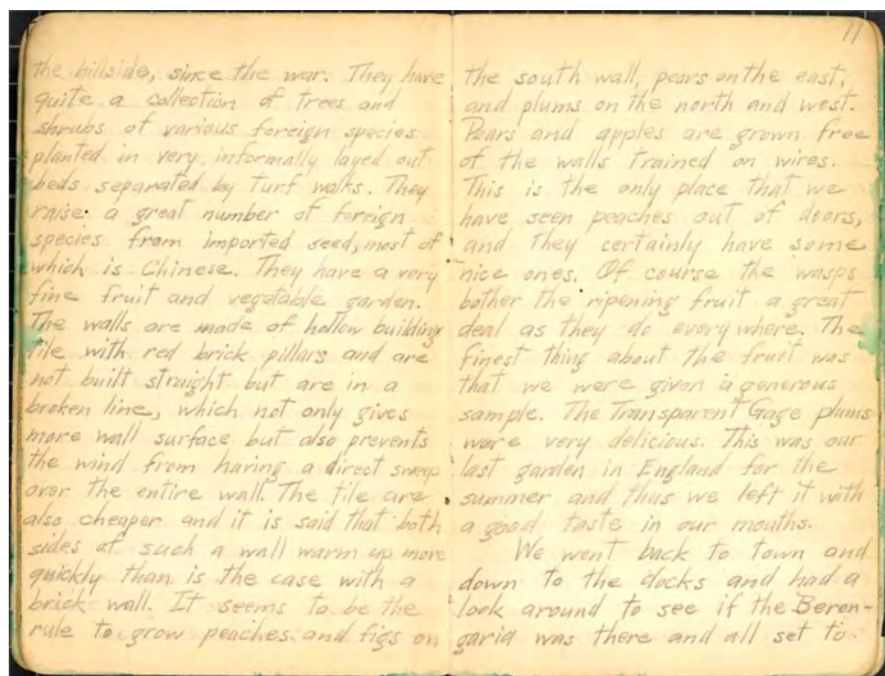 the hillside, since the war. They have
quite a collection of trees and
shrubs of various foreign species
planted in very informally layed out
beds separated by turf walks. They
raise a great number of foreign
species from imported seed, most of
which is Chinese. They have a very
fine fruit and vegetable garden.
The walls are made of hollow building
tile with red brick pillars and are
not built straight but are in a
broken line, which not only gives
more wall surface but also prevents
the wind from having a direct sweep
over the entire wall. The tile are
also cheaper and it is said that both
sides of such a wall warm up more
quickly than is the case with a
brick wall. It seems to be the
rule to grow peaches and figs on
11
the south wall, pears on the east,
and plums on the north and west.
Pears and apples are grown free
of the walls trained on wires.
This is the only place that we
have seen peaches out of doors,
and they certainly have some
nice ones. Of course the wasps
bother the ripening fruit a great
deal as they do everywhere. The
finest thing about the fruit was
that we were given a generous
sample. The Transparent Gage plums
were very delicious. This was our
last garden in England for the
summer and thus we left it with
a good taste in our mouths.
We went back to town and
down to the docks and had a
look around to see if the Beren-
garia was there and all set to